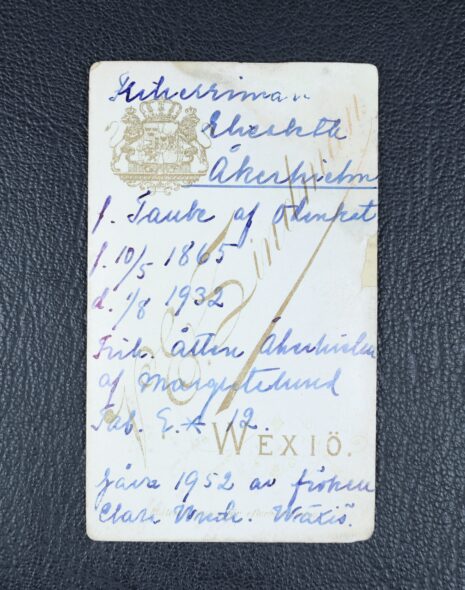 Friherrinnan
Elisabeth
Åkerhielm
f. Taube af Odenkat
f. 10/5 1865
d. 1/8 1932
Frih. ätten Åkerhielm
af Margretelund
Tab. 12.
WEXIÖ.
Gåva 1952 av fröken
Clare Wexiö.